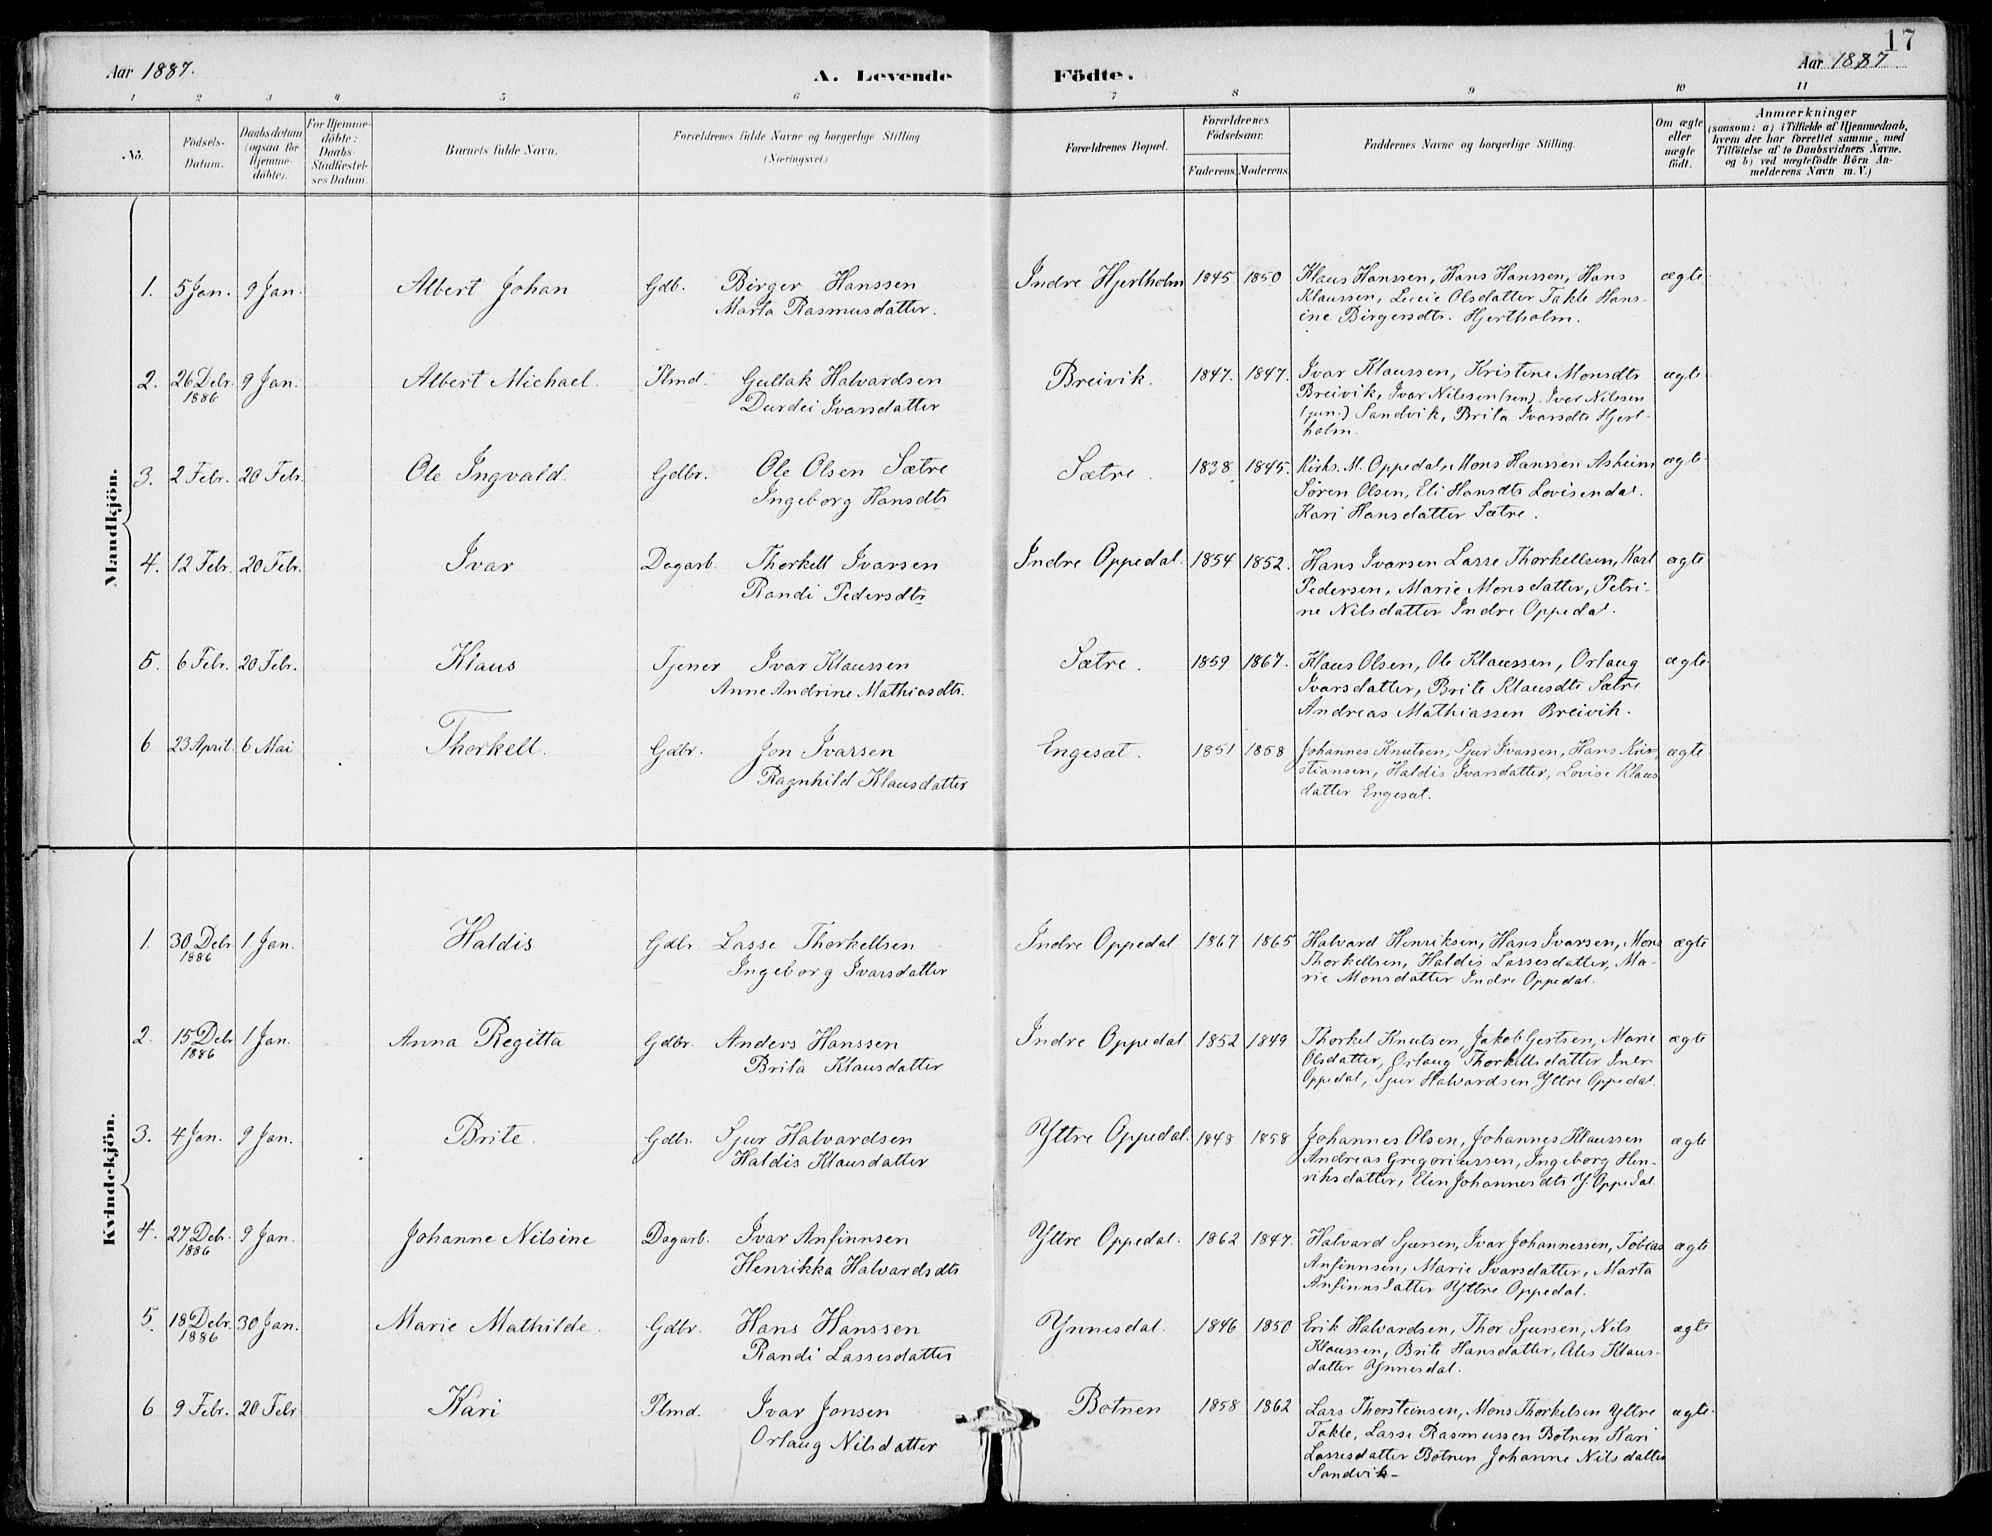 17
Aar 1887.
A. Levende
Födte.
Aar 1887
1 2 3 4 5 6 7 8 9 10 11
No.
Födsels-
Datum.
Daabsdatum
(ogsaa for
Hjemme-
döbte).
For Hjemme-
döbte:
Daabs-
Stadfæstel-
ses Datum.
Barnets fulde Navn.
Forældrenes fulde Navne og borgerlige Stilling
(Næringsvei.)
Forældrenes Bopæl.
Forældrenes
Födselsaar.
Faderens. Moderens.
Faddernes Navne og borgerlige Stilling.
Om ægte
eller
uægte
födt.
Anmærkninger
(saasom: a) i Tilfælde af Hjemmedaab,
hvem der har forrettet samme, med
Tilföielse af to Daabsvidners Navne,
og b) ved uægtefödte Börn An-
melderens Navn m. V.)
Mandkjön.
1. 5 Jan. 9 Jan. Albert Johan Gdb. Birger Hanssen
Marta Rasmusdatter.
Indre Hjertholm 1845 1850 Klaus Hanssen, Hans Hanssen, Hans
Klaussen, Lucie Olsdatter Takle Hans-
ine Birgersdtr. Hjertholm.
ægte
2. 26 Debr. 9 Jan. Albert Michael. Plmd. Gullak Halvardsen
1886
Durdei Ivarsdatter
Breivik. 1847. 1847. Ivar Klaussen, Kristine Monsdtr
Breivik, Ivar Nilssen (sen). Iver Nilssen
(jun.) Sandvik, Brita Ivarsdtr Hjert-
holm.
ægte
3. 2 Febr. 20 Febr. Ole Ingvald. Gdbr. Ole Olsen Sætre
Ingeborg Hansdtr
Sætre. 1838 1845. Kirks. M. Oppedal, Mons Hanssen Asheim
Søren Olsen, Eli Hansdtr Lovisendal.
Kari Hansdatter Sætre.
ægte
4. 12 Febr. 20 Febr. Ivar Dagarb. Thorkell Ivarsen
Randi Pedersdtr
Indre Oppedal. 1854 1852. Hans Ivarsen Lasse Thorkellsen, Karl
Pedersen, Marie Monsdatter, Petri-
ne Nilsdatter Indre Oppedal.
ægte
5. 6 Febr. 20 Febr. Klaus Tjener Ivar Klaussen
Anne Andrine Mathiasdtr.
Sætre. 1859 1867. Klaus Olsen, Ole Klaussen, Orlaug
Ivarsdatter, Brite Klausdtr Sætre
Andreas Mathiassen Breivik.
ægte
6 23 April. 6 Mai Thorkell. Gdbr. Jon Ivarsen
Ragnhild Klausdatter
Engesæt. 1851 1858 Johannes Knutsen, Sjur Ivarsen, Hans Kri-
stiansen, Haldis Ivarsdatter, Lovise Klaus
datter Engesæt.
ægte
Kvindekjön.
1. 30 Debr 1 Jan. Haldis Gdbr. Lasse Thorkellsen
1886
Ingeborg Ivarsdatter
Indre Oppedal 1867 1865 Halvard Henriksen, Hans Ivarsen, Mons
Thorkellsen, Haldis Lassesdatter, Ma-
rie Monsdatter Indre Oppedal.
ægte
2. 15 Debr 1 Jan. Anna Regitta Gdbr. Anders Hanssen
1886
Brita Klausdatter
Indre Oppedal 1852 1849 Thorkel Knutsen, Jakob Gertsen, Marie
Olsdatter, Orlaug Thorkellsdatter Indr
Oppedal, Sjur Halvardsen Yttre Oppedal.
ægte
3. 4 Jan. 9 Jan. Brite. Gdbr. Sjur Halvardsen
Haldis Klausdatter
Yttre Oppedal. 1848 1858 Johannes Olsen, Johannes Klaussen
Andreas Gregoriussen, Ingeborg Hen-
riksdatter, Elen Johannesdtr Y. Oppedal.
ægte
4. 27 Debr. 9 Jan. Johanne Nilsine Dagarb. Ivar Anfinnsen
1886
Henrikka Halvardsdtr
Yttre Oppedal. 1862 1847. Halvard Sjursen, Ivar Johannessen, Tobias
Anfinnsen, Marie Ivarsdatter, Marta
Anfinnsdatter Yttre Oppedal.
ægte
5. 18 Debr. 30 Jan. Marie Mathilde. Gdbr. Hans Hanssen
1886
Randi Lassesdatter
Ynnesdal. 1846 1850 Erik Halvardsen, Thor Sjursen, Nils
Klaussen, Brite Hansdatter, Ales Klaus-
datter Ynnesdal.
ægte
6 9 Febr. 20 Febr Kari Plmd. Ivar Jonsen
Orlaug Nilsdatter
Botnen 1858 1862 Lars Thorsteinsen, Mons Thorkelsen Yttre
Takle, Lasse Rasmussen Botnen Kari
Lassesdatter Botnen Johanne Nilsdatter
Sandvik
ægte.